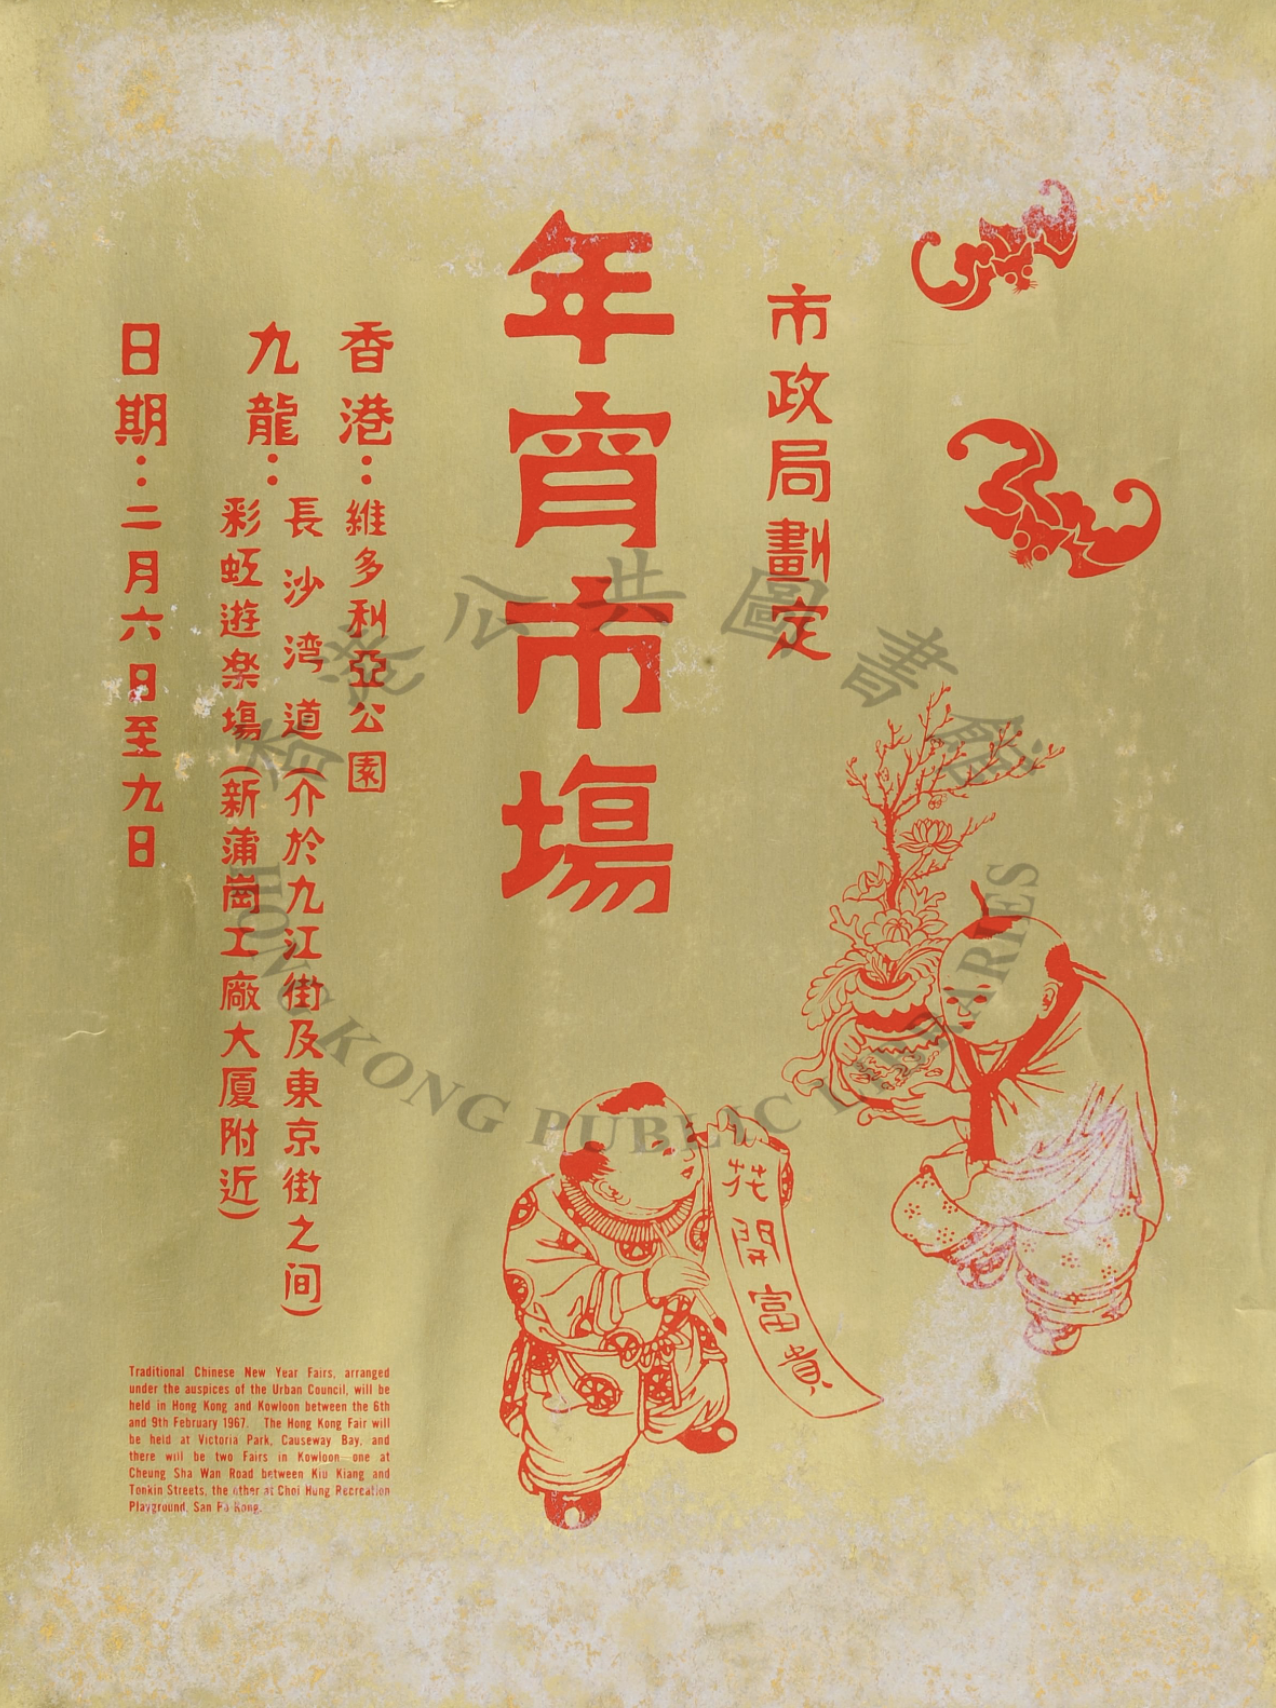 市政局劃定
年宵市塲
香港：維多利亞公園
九龍：長沙湾道（介於九江街及東京街之间）
彩虹遊楽塲（新蒲崗工廠大厦附近）
日期：二月六日至九日
花開富貴
Traditional Chinese New Year Fairs, arranged
under the auspices of the Urban Council, will be
held in Hong Kong and Kowloon between the 6th
and 9th February 1967. The Hong Kong Fair will
be held at Victoria Park, Causeway Bay, and
there will be two Fairs in Kowloon one at
Cheung Sha Wan Road between Kiu Kiang and
Tonkin Streets, the other at Choi Hung Recreation
Playground, San Po Kong.
香港公共圖書館
HONG KONG PUBLIC LIBRARIES